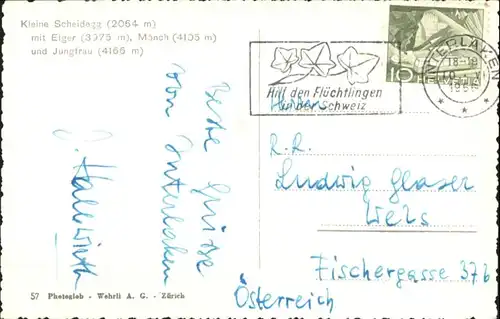 Kleine Scheidegg (2064 m)
mit Eiger (3975 m), Mönch (4105 m)
und Jungfrau (4166 m)
Beste Grüsse
von Interlaken
Hilf den Flüchtlingen
in der Schweiz
10
INTERLAKEN
18-19
Herrn
Ludwig Glaser
Wels
Fischergasse 37b
Österreich
57 Photoglob - Wehrli A. G. - Zürich